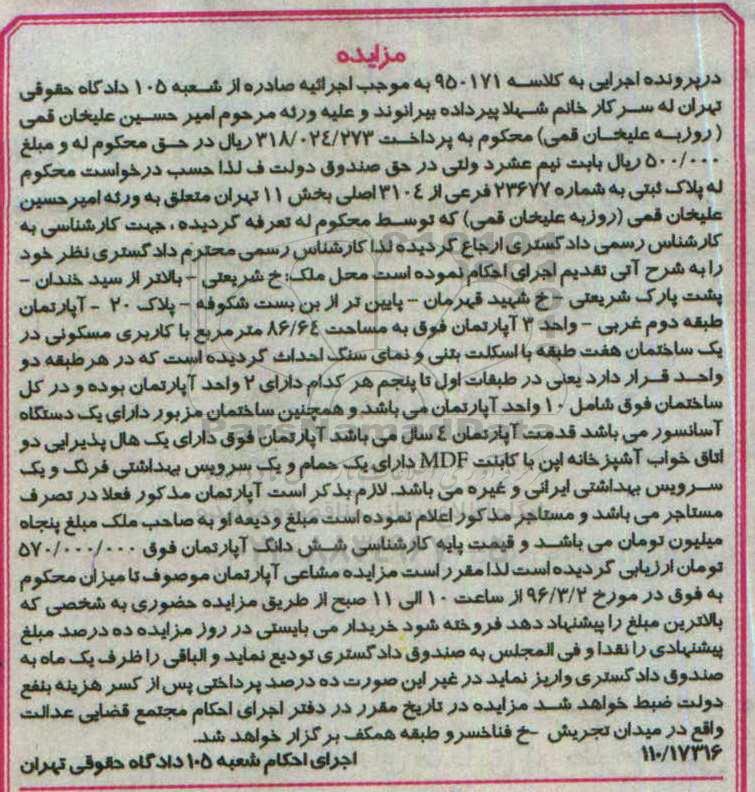 مزایده
درپرونده اجرایی به کلاسه ۹۵۰۱۷۱ به موجب اجرائیه صادره از شعبه ۱۰۵ دادگاه حقوقی
تهران له سرکار خانم شهلا پیرداده بیرانوند و علیه ورثه مرحوم امیر حسین علیخان قمی
(روزبه علیخان قمی) محکوم به پرداخت ۳۱۸/۰۲۴/۲۷۳ ریال در حق محکوم له و مبلغ
۵۰۰/۰۰۰ ریال بابت نیم عشرد ولتی در حق صندوق دولت ف لذا حسب درخواست محکوم
له پلاک ثبتی به شماره ۲۳۶۷۷ فرعی از ۳۱۰۴ اصلی بخش ۱۱ تهران متعلق به ورثه امیرحسین
علیخان قمی (روزبه علیخان قمی) که توسط محکوم له تعرفه گردیده، جهت کارشناسی به
کارشناس رسمی دادگستری ارجاع گردیده لذا کارشناس رسمی محترم دادگستری نظر خود
را به شرح آتی تقدیم اجرای احکام نموده است محل ملک: خ شریعتی - بالاتر از سید خندان -
پشت پارک شریعتی - خ شهید قهرمان - پایین تر از بن بست شکوفه - پلاک ۲۰ - آپارتمان
طبقه دوم غربی - واحد ۳ آپارتمان فوق به مساحت ۸۶/۶۴ مترمربع با کاربری مسکونی در
یک ساختمان هفت طبقه با اسکلت بتنی و نمای سنگ احداث گردیده است که در هرطبقه دو
واحد قرار دارد یعنی در طبقات اول تا پنجم هر کدام دارای ۲ واحد آپارتمان بوده و در کل
ساختمان فوق شامل ۱۰ واحد آپارتمان می باشد و همچنین ساختمان مزبور دارای یک دستگاه
آسانسور می باشد قدمت آپارتمان ٤ سال می باشد آپارتمان فوق دارای یک هال پذیرایی دو
اتاق خواب آشپزخانه اپن با کابنت MDF دارای یک حمام و یک سرویس بهداشتی فرنگ و یک
سرویس بهداشتی ایرانی و غیره می باشد. لازم بذکر است آپارتمان مذکور فعلا در تصرف
مستاجر می باشد و مستاجر مذکور اعلام نموده است مبلغ ودیعه او به صاحب ملک مبلغ پنجاه
میلیون تومان می باشد و قیمت پایه کارشناسی شش دانگ آپارتمان فوق ۵۷۰/۰۰۰/۰۰۰
تومان ارزیابی گردیده است لذا مقرر است مزایده مشاعی آپارتمان موصوف تا میزان محکوم
به فوق در مورخ ۹۶/۳/۲ از ساعت ۱۰ الی ۱۱ صبح از طریق مزایده حضوری به شخصی که
بالاترین مبلغ را پیشنهاد دهد فروخته شود خریدار می بایستی در روز مزایده ده درصد مبلغ
پیشنهادی را نقدا و فی المجلس به صندوق دادگستری تودیع نماید و الباقی را ظرف یک ماه به
صندوق دادگستری واریز نماید در غیر این صورت ده درصد پرداختی پس از کسر هزینه بنفع
دولت ضبط خواهد شد مزایده در تاریخ مقرر در دفتر اجرای احکام مجتمع قضایی عدالت
واقع در میدان تجریش -خ فناخسرو طبقه همکف برگزار خواهد شد.
۱۱۰/۱۷۳۱۶ اجرای احکام شعبه ۱۰۵ دادگاه حقوقی تهران
ParsNamadData